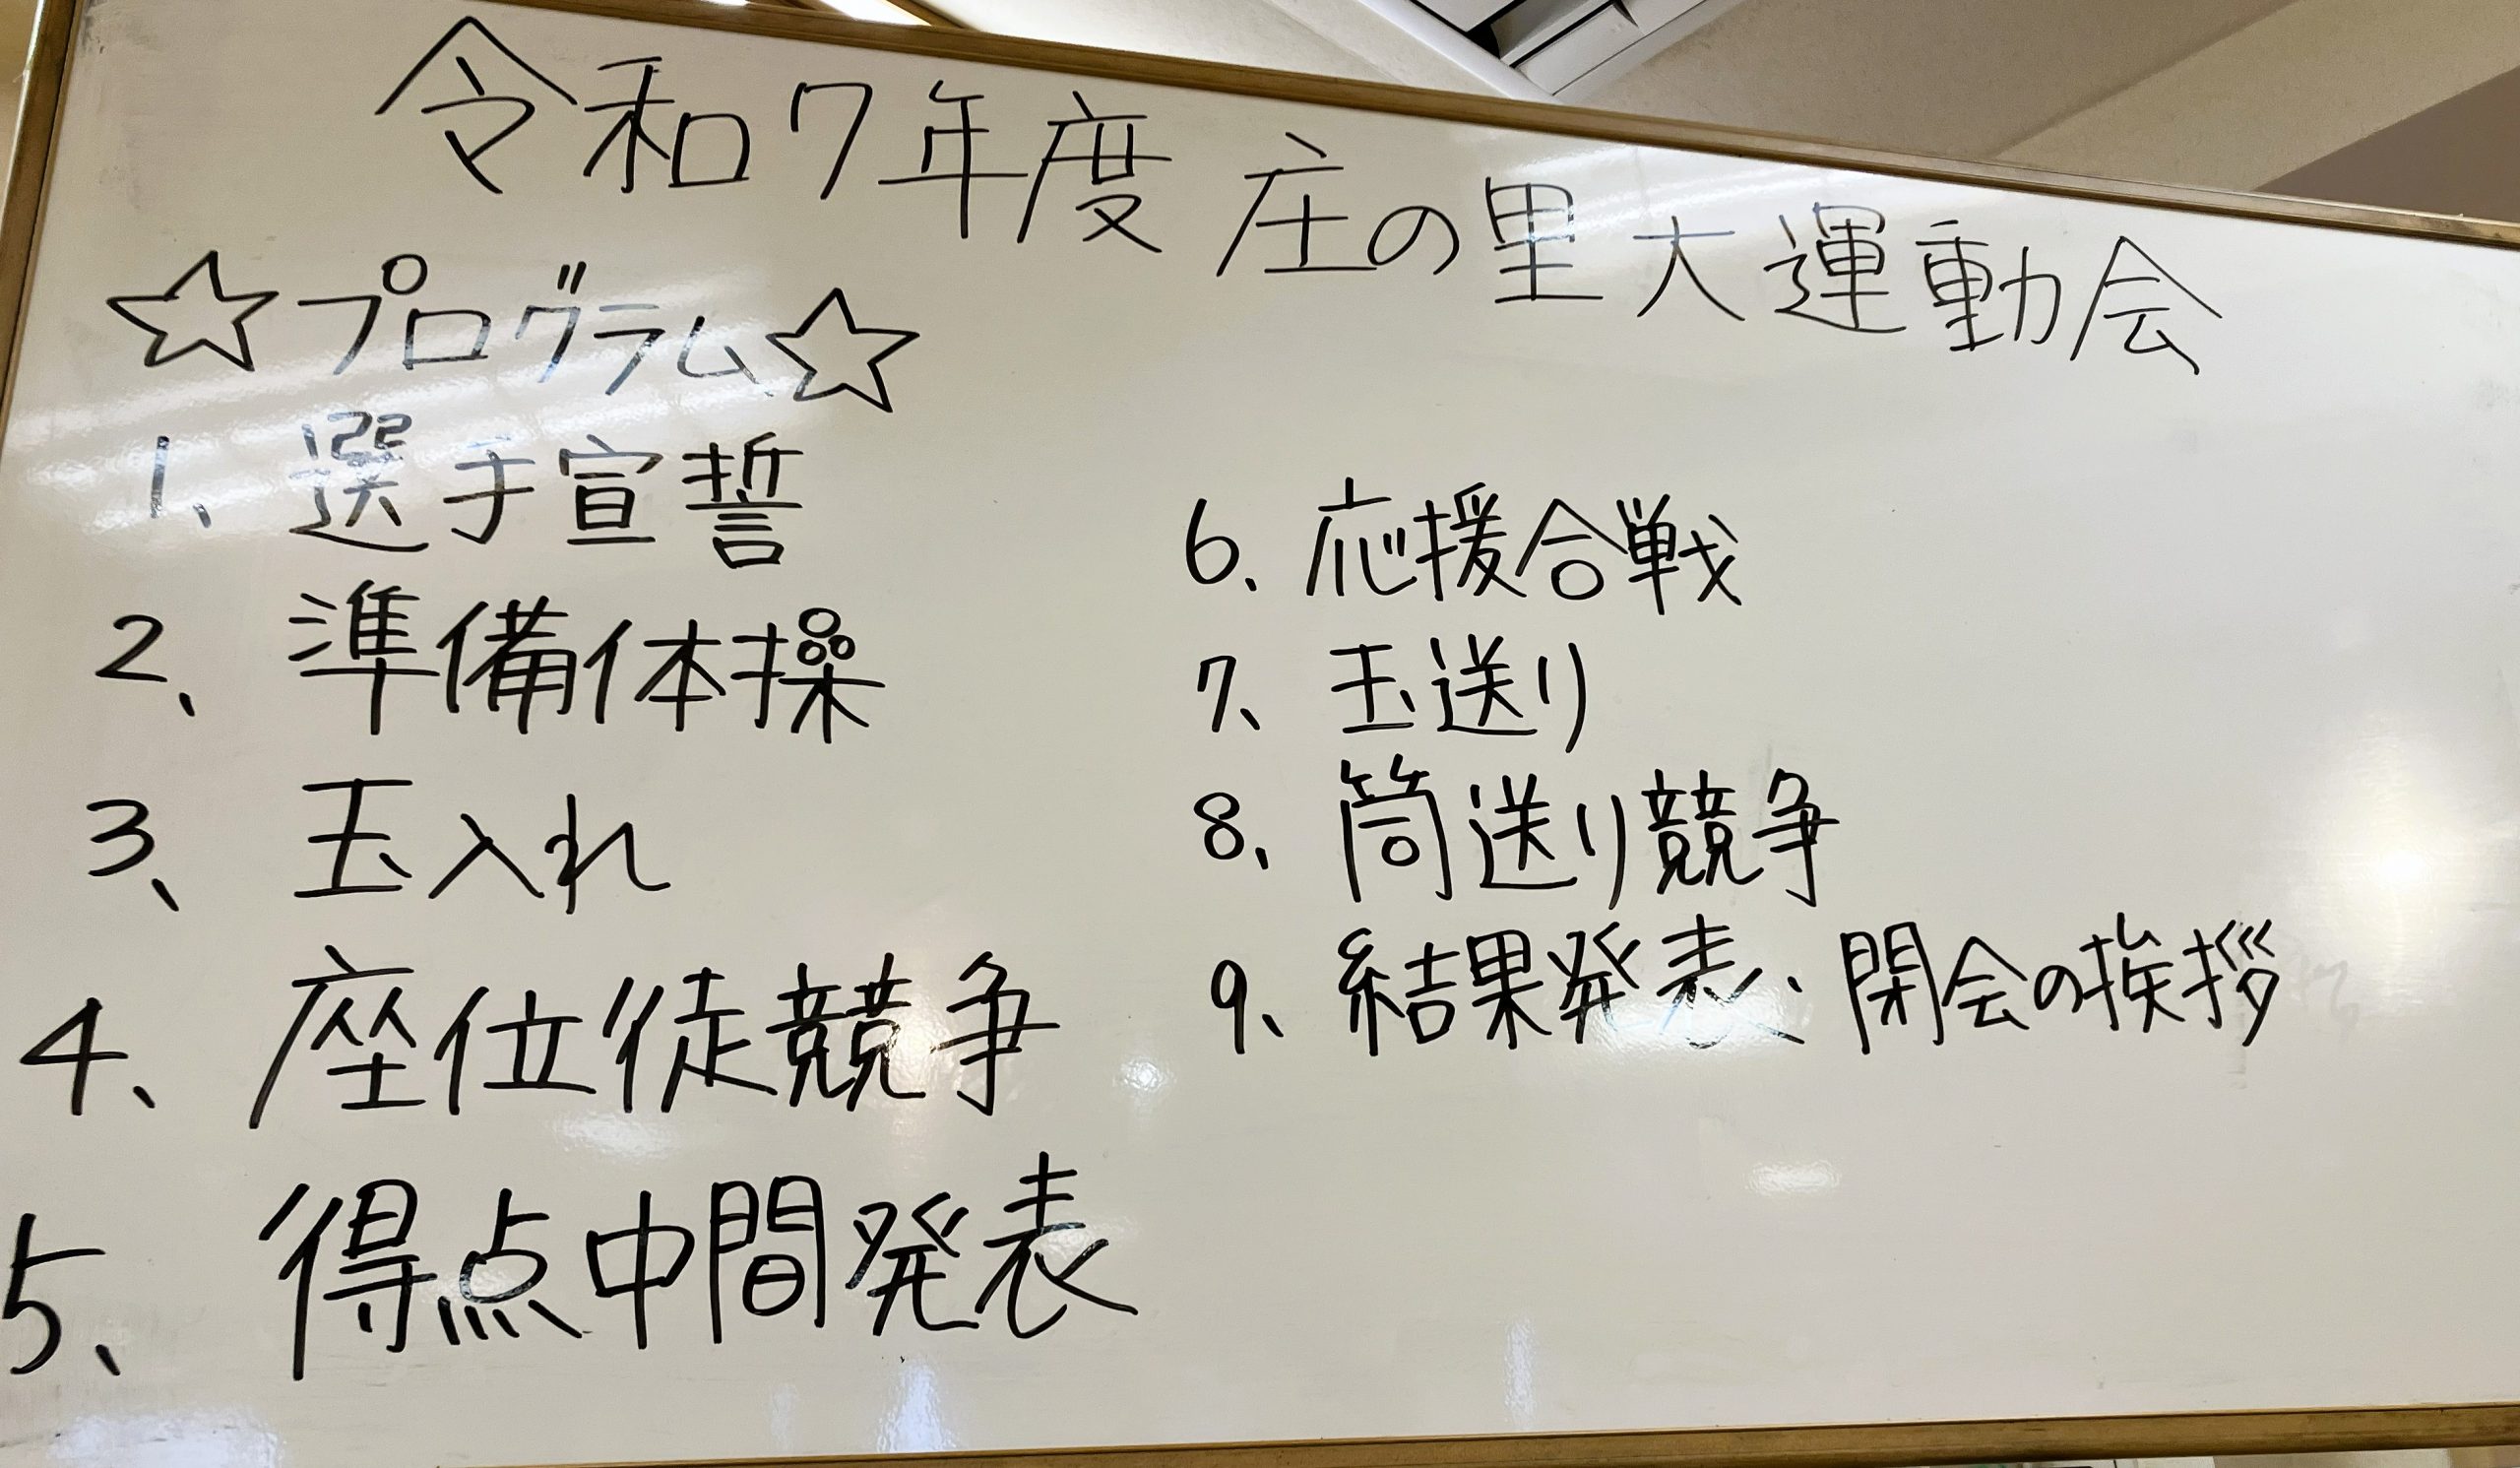 令和7年度 庄の里大運動会
☆プログラム☆
1、選手宣誓
2、準備体操
3、玉入れ
4、座位徒競争
5、得点中間発表
6、応援合戦
7、玉送り
8、筒送り競争
9、結果発表、閉会の挨拶